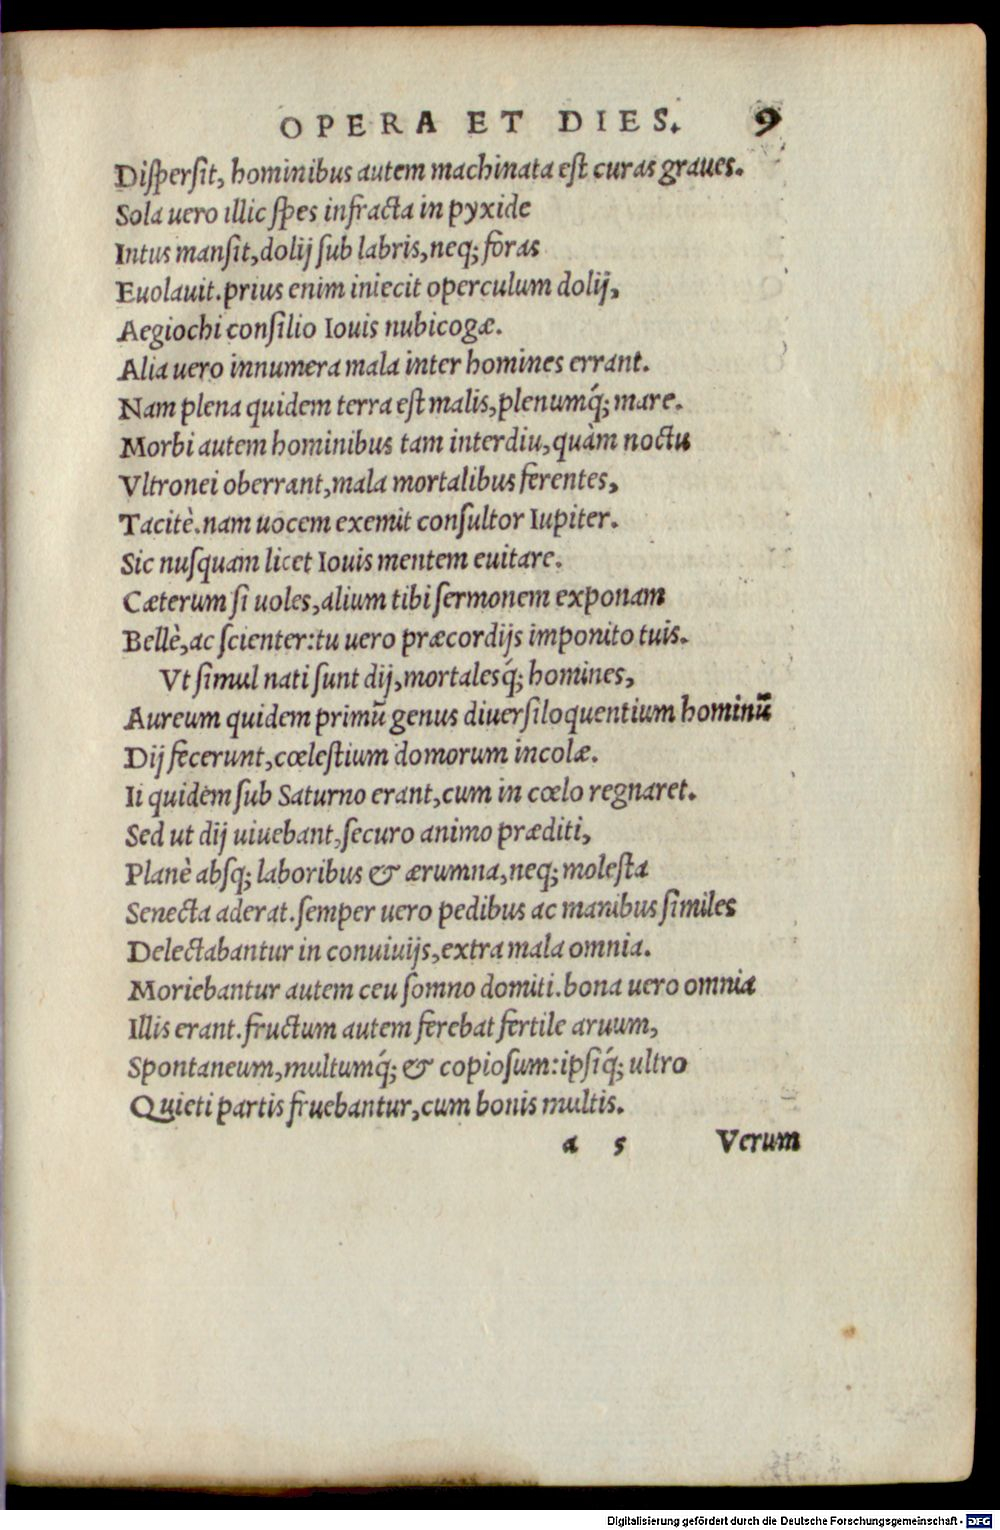 OPERA ET DIES. 9
Diſperſit, hominibus autem machinata eſt curas graues.
Sola uero illic ſpes infracta in pyxide
Intus manſit, dolij ſub labris, neq; foras
Euolauit. prius enim iniecit operculum dolij,
Aegiochi conſilio Iouis nubicogæ.
Alia uero innumera mala inter homines errant.
Nam plena quidem terra eſt malis, plenumq́; mare.
Morbi autem hominibus tam interdiu, quàm noctu
Vltronei oberrant, mala mortalibus ferentes,
Tacitè. nam uocem exemit conſultor Iupiter.
Sic nuſquam licet Iouis mentem euitare.
Cæterum ſi uoles, alium tibi ſermonem exponam
Bellè, ac ſcienter: tu uero præcordijs imponito tuis.
Vt ſimul nati ſunt dij, mortalesq́; homines,
Aureum quidem primũ genus diuerſiloquentium hominũ
Dij fecerunt, cœleſtium domorum incolæ.
Ii quidem ſub Saturno erant, cum in cœlo regnaret.
Sed ut dij uiuebant, ſecuro animo præditi,
Planè absq; laboribus & ærumna, neq; moleſta
Senecta aderat. ſemper uero pedibus ac manibus ſimiles
Delectabantur in conuiuijs, extra mala omnia.
Moriebantur autem ceu ſomno domiti. bona uero omnia
Illis erant. fructum autem ferebat fertile aruum,
Spontaneum, multumq́; & copioſum: ipſiq́; ultro
Quieti partis fruebantur, cum bonis multis.
a 5 Verum
Digitalisierung gefördert durch die Deutsche Forschungsgemeinschaft - DFG